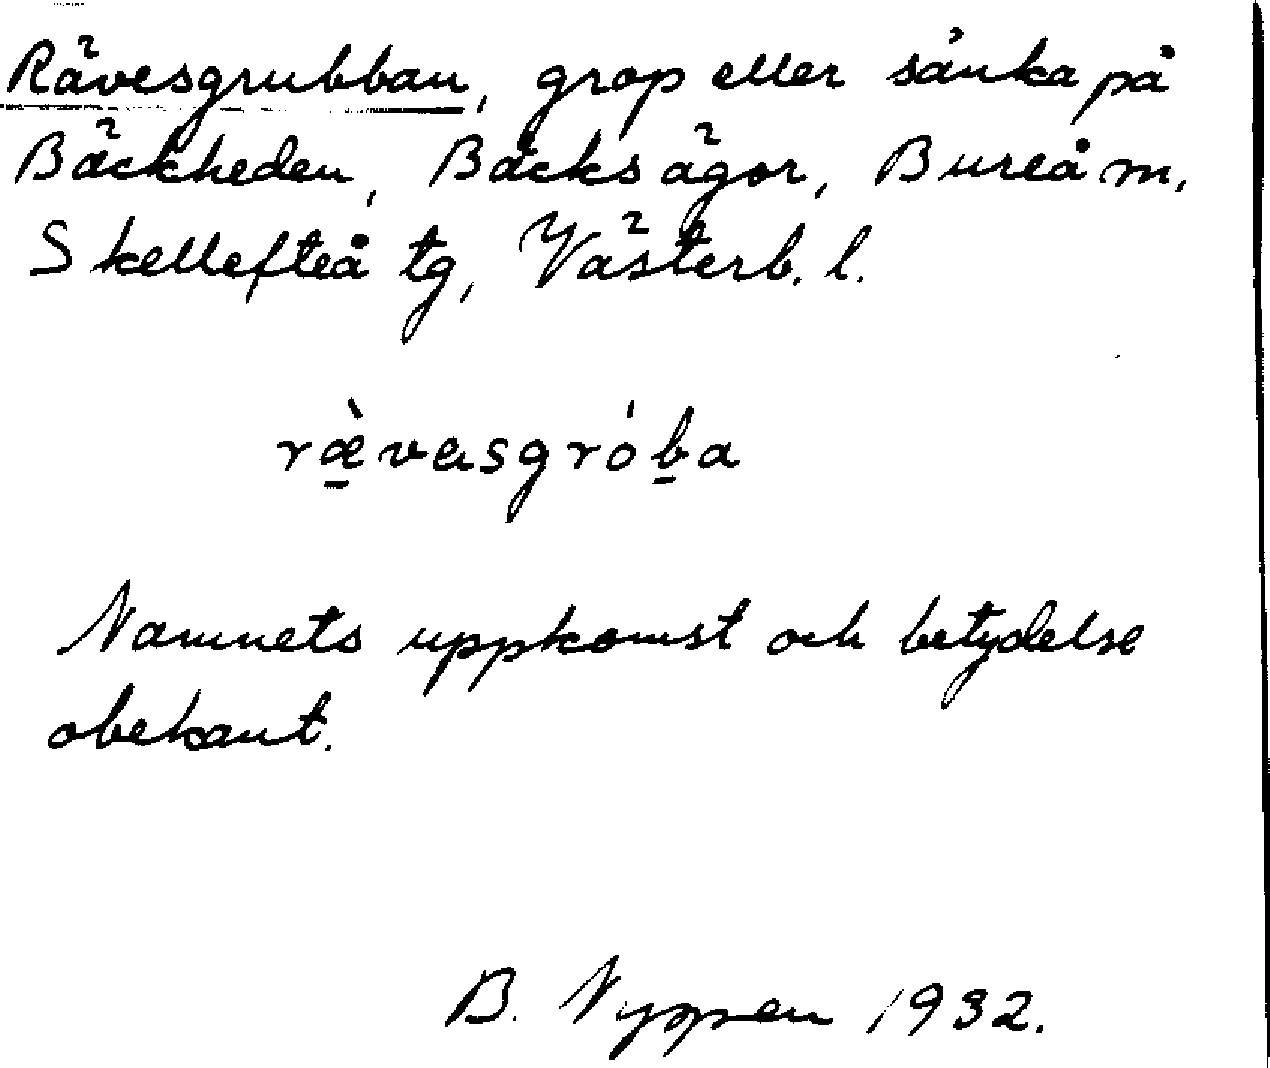 Rävesgrubban, grop eller sänka på
Bäckheden, Bäcks ägor, Bureå m,
Skellefteå tg, Västerb. l.
ræ̠̀vasgrób̠a
Namnets uppkomst och betydelse
obekant.
B. Nyppen 1932.